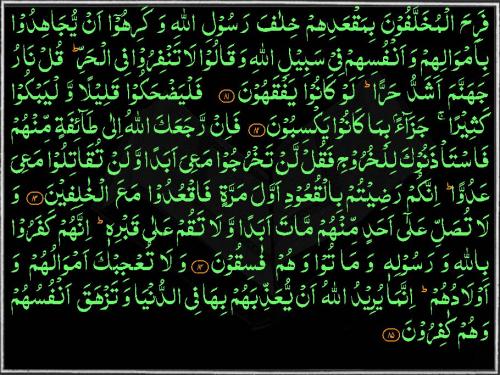 فَرِحَ الْمُخَلَّفُوْنَ بِمَقْعَدِهِمْ خِلٰفَ رَسُوْلِ اللّٰهِ وَ كَرِهُوْۤا اَنْ يُّجَاهِدُوْا
بِاَمْوَالِهِمْ وَ اَنْفُسِهِمْ فِيْ سَبِيْلِ اللّٰهِ وَ قَالُوْا لَا تَنْفِرُوْا فِي الْحَرِّ ؕ قُلْ نَارُ
جَهَنَّمَ اَشَدُّ حَرًّا ؕ لَوْ كَانُوْا يَفْقَهُوْنَ ۸۱ فَلْيَضْحَكُوْا قَلِيْلًا وَّ لْيَبْكُوْا
كَثِيْرًا ۚ جَزَآءًۢ بِمَا كَانُوْا يَكْسِبُوْنَ ۸۲ فَاِنْ رَّجَعَكَ اللّٰهُ اِلٰى طَآئِفَةٍ مِّنْهُمْ
فَاسْتَاْذَنُوْكَ لِلْخُرُوْجِ فَقُلْ لَّنْ تَخْرُجُوْا مَعِيَ اَبَدًا وَّ لَنْ تُقَاتِلُوْا مَعِيَ
عَدُوًّا ؕ اِنَّكُمْ رَضِيْتُمْ بِالْقُعُوْدِ اَوَّلَ مَرَّةٍ فَاقْعُدُوْا مَعَ الْخٰلِفِيْنَ ۸۳ وَ
لَا تُصَلِّ عَلٰۤى اَحَدٍ مِّنْهُمْ مَّاتَ اَبَدًا وَّ لَا تَقُمْ عَلٰى قَبْرِهٖ ؕ اِنَّهُمْ كَفَرُوْا
بِاللّٰهِ وَ رَسُوْلِهٖ وَ مَا تُوْا وَ هُمْ فٰسِقُوْنَ ۸۴ وَ لَا تُعْجِبْكَ اَمْوَالُهُمْ وَ
اَوْلَادُهُمْ ؕ اِنَّمَا يُرِيْدُ اللّٰهُ اَنْ يُّعَذِّبَهُمْ بِهَا فِي الدُّنْيَا وَ تَزْهَقَ اَنْفُسُهُمْ
وَ هُمْ كٰفِرُوْنَ ۸۵